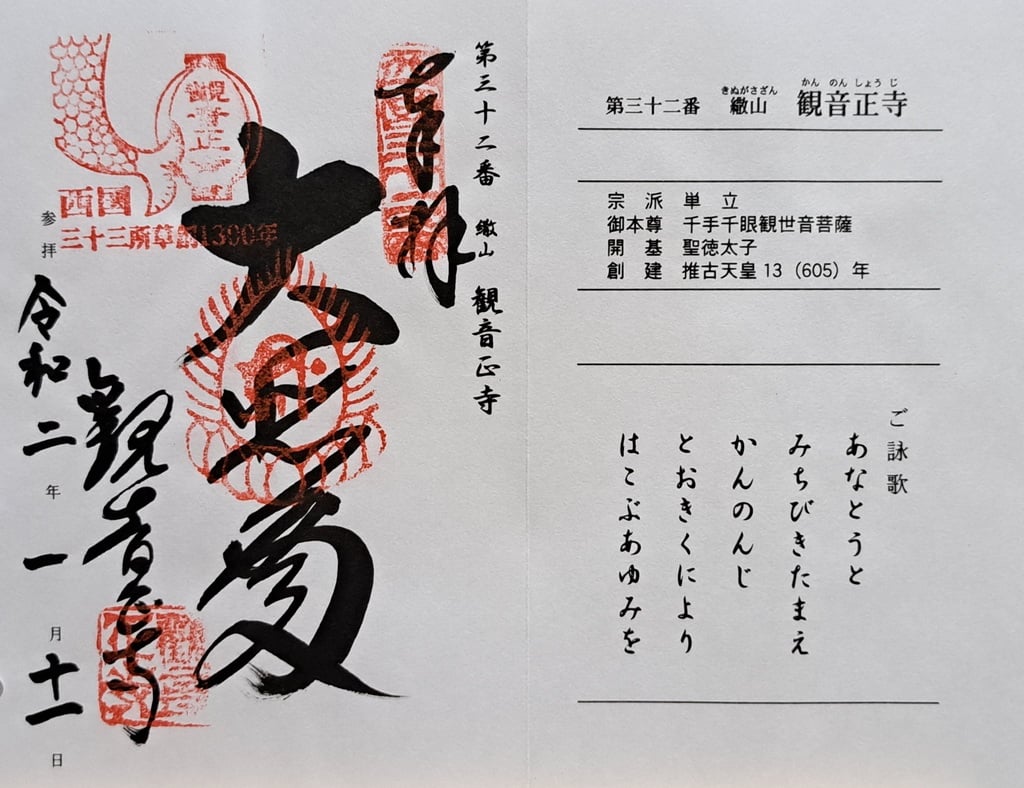 きぬがさざん かんのんしょうじ
第三十二番 繖山 観音正寺
宗派 単立
御本尊 千手千眼観世音菩薩
開基 聖徳太子
創建 推古天皇13（605）年
ご詠歌
あなとうと
みちびきたまえ
かんのんじ
とおきくにより
はこぶあゆみを
第三十二番 繖山 観音正寺
奉拝
大悲閣
觀音正
西國
三十三所草創1300年
觀音正寺
参拝 令和二年一月十一日